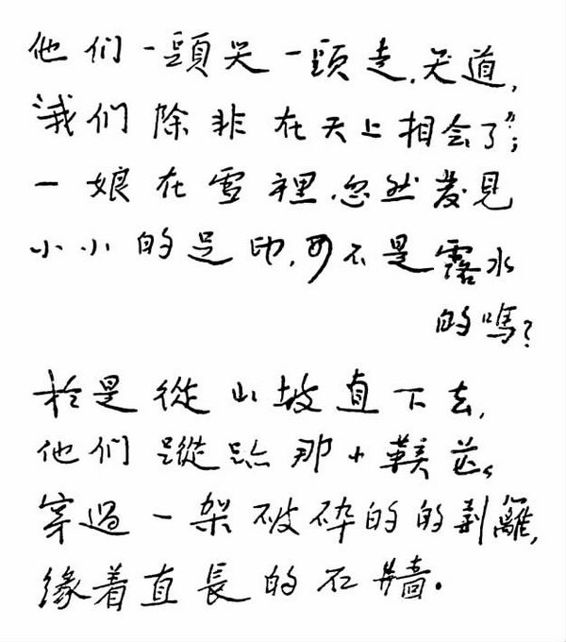 他们一頭哭一頭走,哭道,
"我们除非在天上相会了";
一娘在雪裡,忽然發見
小小的足印,可不是露水
的嗎?
於是從山坡直下去,
他们蹤跡那小
穿過一架破碎的的荆籬,
缘着直長的石牆.